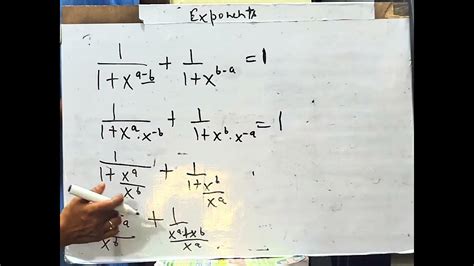 Exponents
1/(1+x^(a-b)) + 1/(1+x^(b-a)) = 1
1/(1+x^a·x^-b) + 1/(1+x^b·x^-a) = 1
1/(1+x^a/x^b) + 1/(1+x^b/x^a)
+ 1/((x^a+x^b)/x^a)